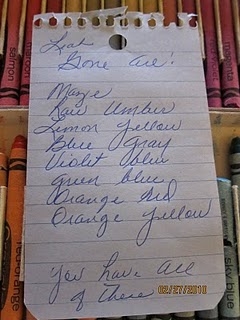 Leah
Gone are!
Maize
Raw Umber
Lemon Yellow
Blue Gray
Violet blue
green blue
Orange Red
Orange Yellow
You have all
of These
02/27/2010
salmon
red orange
sky blue